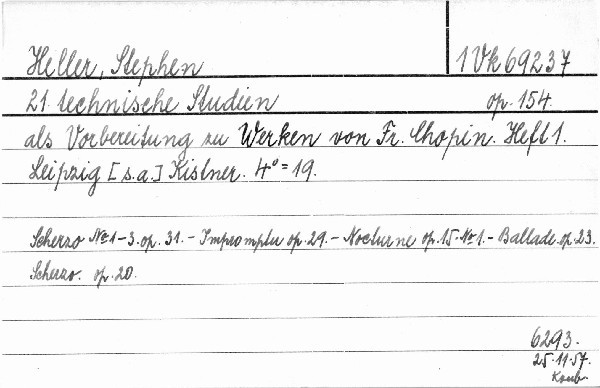 Heller, Stephen 1 Vk 69237
21 technische Studien op. 154.
als Vorbereitung zu Werken von Fr. Chopin. Heft 1.
Leipzig [s.a.] Kistner. 4° = 19.
Scherzo No 1-3. op. 31. - Impromptu op. 29. - Nocturne op. 15. No 1. - Ballade. op. 23.
Scherzo. op. 20.
6293.
25.11.57.